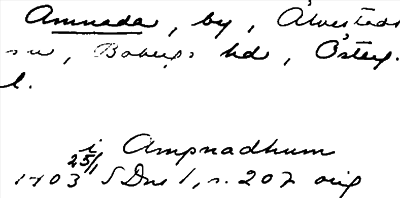 Amnada, by, Älvestads
sn, Bobergs hd, Österg.
l.
i Ampnadhum
25/1
1403 SDns 1, s. 207 orig